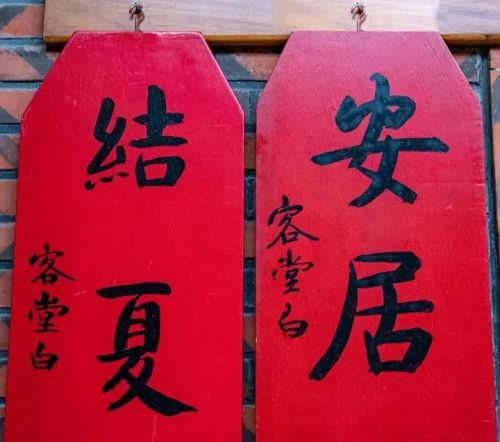 安居
客堂白
結夏
客堂白